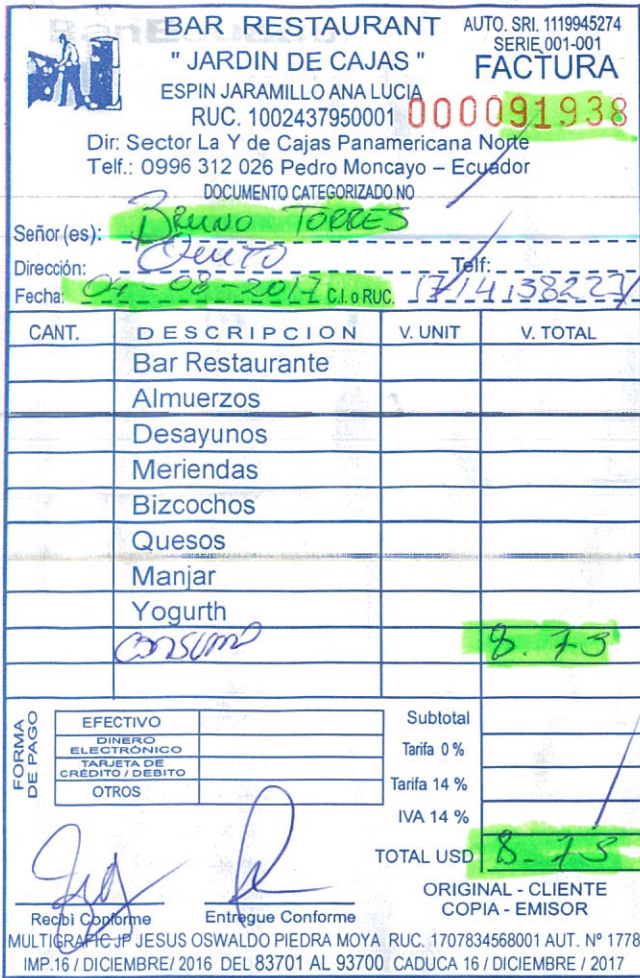 BAR RESTAURANT
" JARDIN DE CAJAS "
ESPIN JARAMILLO ANA LUCIA
RUC. 1002437950001
AUTO. SRI. 1119945274
SERIE 001-001
FACTURA
000091938
Dir: Sector La Y de Cajas Panamericana Norte
Telf.: 0996 312 026 Pedro Moncayo – Ecuador
DOCUMENTO CATEGORIZADO NO
Señor (es): BRUNO TORRES
Dirección: Quito Telf:
Fecha: 04-08-2017 C.I. o RUC.
CANT. DESCRIPCION V. UNIT V. TOTAL
Bar Restaurante
Almuerzos
Desayunos
Meriendas
Bizcochos
Quesos
Manjar
Yogurth
consumo 8.75
FORMA DE PAGO
EFECTIVO
DINERO ELECTRÓNICO
TARJETA DE CRÉDITO / DEBITO
OTROS
Subtotal
Tarifa 0 %
Tarifa 14 %
IVA 14 %
TOTAL USD 8.75
Recibi Conforme Entregue Conforme
ORIGINAL - CLIENTE
COPIA - EMISOR
MULTIGRAFIC JP JESUS OSWALDO PIEDRA MOYA RUC. 1707834568001 AUT. Nº 1778
IMP.16 / DICIEMBRE/ 2016 DEL 83701 AL 93700 CADUCA 16 / DICIEMBRE / 2017